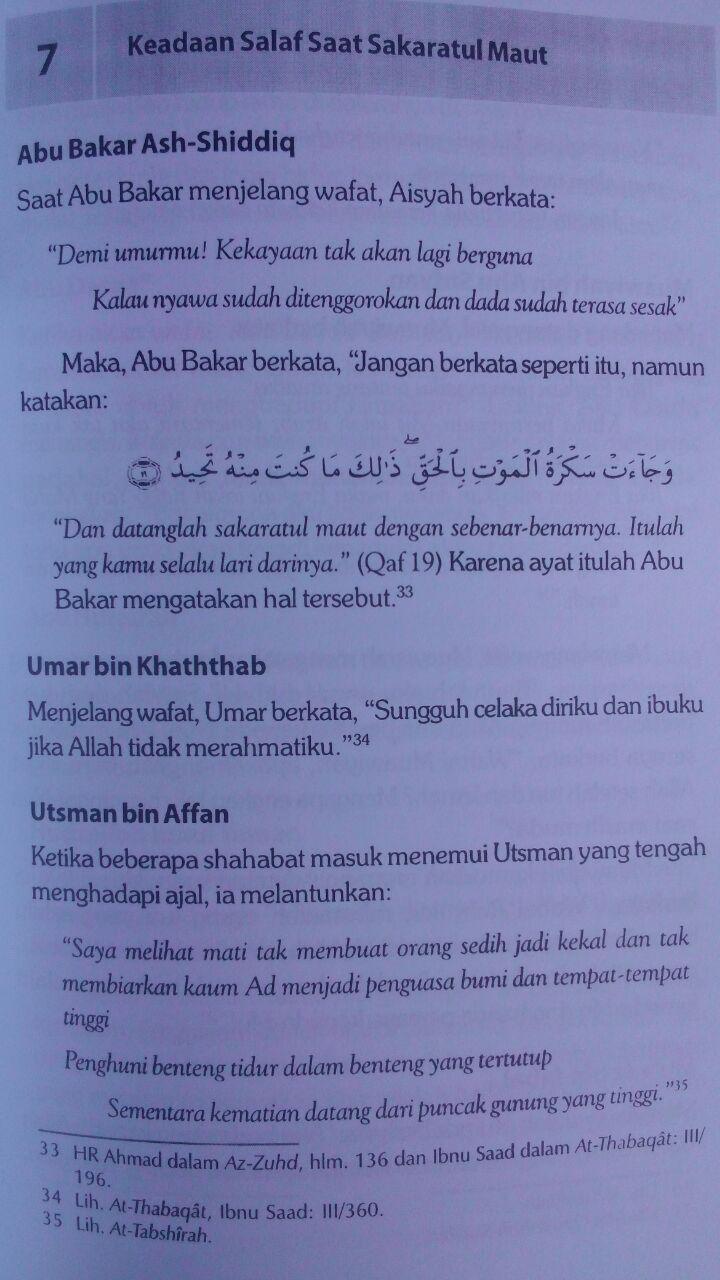 7
Keadaan Salaf Saat Sakaratul Maut
Abu Bakar Ash-Shiddiq
Saat Abu Bakar menjelang wafat, Aisyah berkata:
“Demi umurmu! Kekayaan tak akan lagi berguna
Kalau nyawa sudah ditenggorokan dan dada sudah terasa sesak”
Maka, Abu Bakar berkata, “Jangan berkata seperti itu, namun
katakan:
وَجَآءَتْ سَكْرَةُ ٱلْمَوْتِ بِٱلْحَقِّ ۖ ذَٰلِكَ مَا كُنتَ مِنْهُ تَحِيدُ ۝١٩
“Dan datanglah sakaratul maut dengan sebenar-benarnya. Itulah
yang kamu selalu lari darinya.” (Qaf 19) Karena ayat itulah Abu
Bakar mengatakan hal tersebut.33
Umar bin Khaththab
Menjelang wafat, Umar berkata, “Sungguh celaka diriku dan ibuku
jika Allah tidak merahmatiku.”34
Utsman bin Affan
Ketika beberapa shahabat masuk menemui Utsman yang tengah
menghadapi ajal, ia melantunkan:
“Saya melihat mati tak membuat orang sedih jadi kekal dan tak
membiarkan kaum Ad menjadi penguasa bumi dan tempat-tempat
tinggi
Penghuni benteng tidur dalam benteng yang tertutup
Sementara kematian datang dari puncak gunung yang tinggi.”35
33 HR Ahmad dalam Az-Zuhd, hlm. 136 dan Ibnu Saad dalam At-Thabaqât: III/
196.
34 Lih. At-Thabaqât, Ibnu Saad: III/360.
35 Lih. At-Tabshîrah.